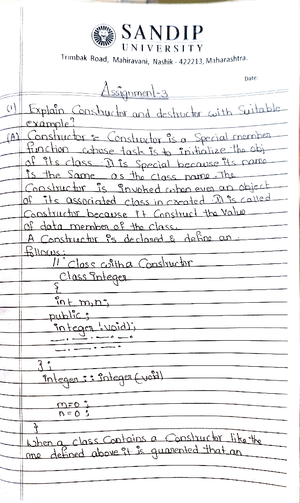 SANDIP
UNIVERSITY
Trimbak Road, Mahiravani, Nashik - 422213, Maharashtra.
Date:
Assignment-3
(1) Explain Constructor and destructor with Suitable
example?
(A) Constructor :- Constructor is a Special member
function whose task is to initialize the obj
of its class. It is Special because its name
is the Same as the class name. The
Constructor is invoked when even an object
of its associated class in created It is called
Constructor because It Construct the Value
of data member of the class.
A Constructor is declared & define an
follows:
// Class with a Constructor
Class integer
{
int m,n;
public;
integer (void);
};
integer :: integer (void)
m=0 ;
n=0 ;
}
When a class Contains a Constructor like the
one defined above it is guarented that an